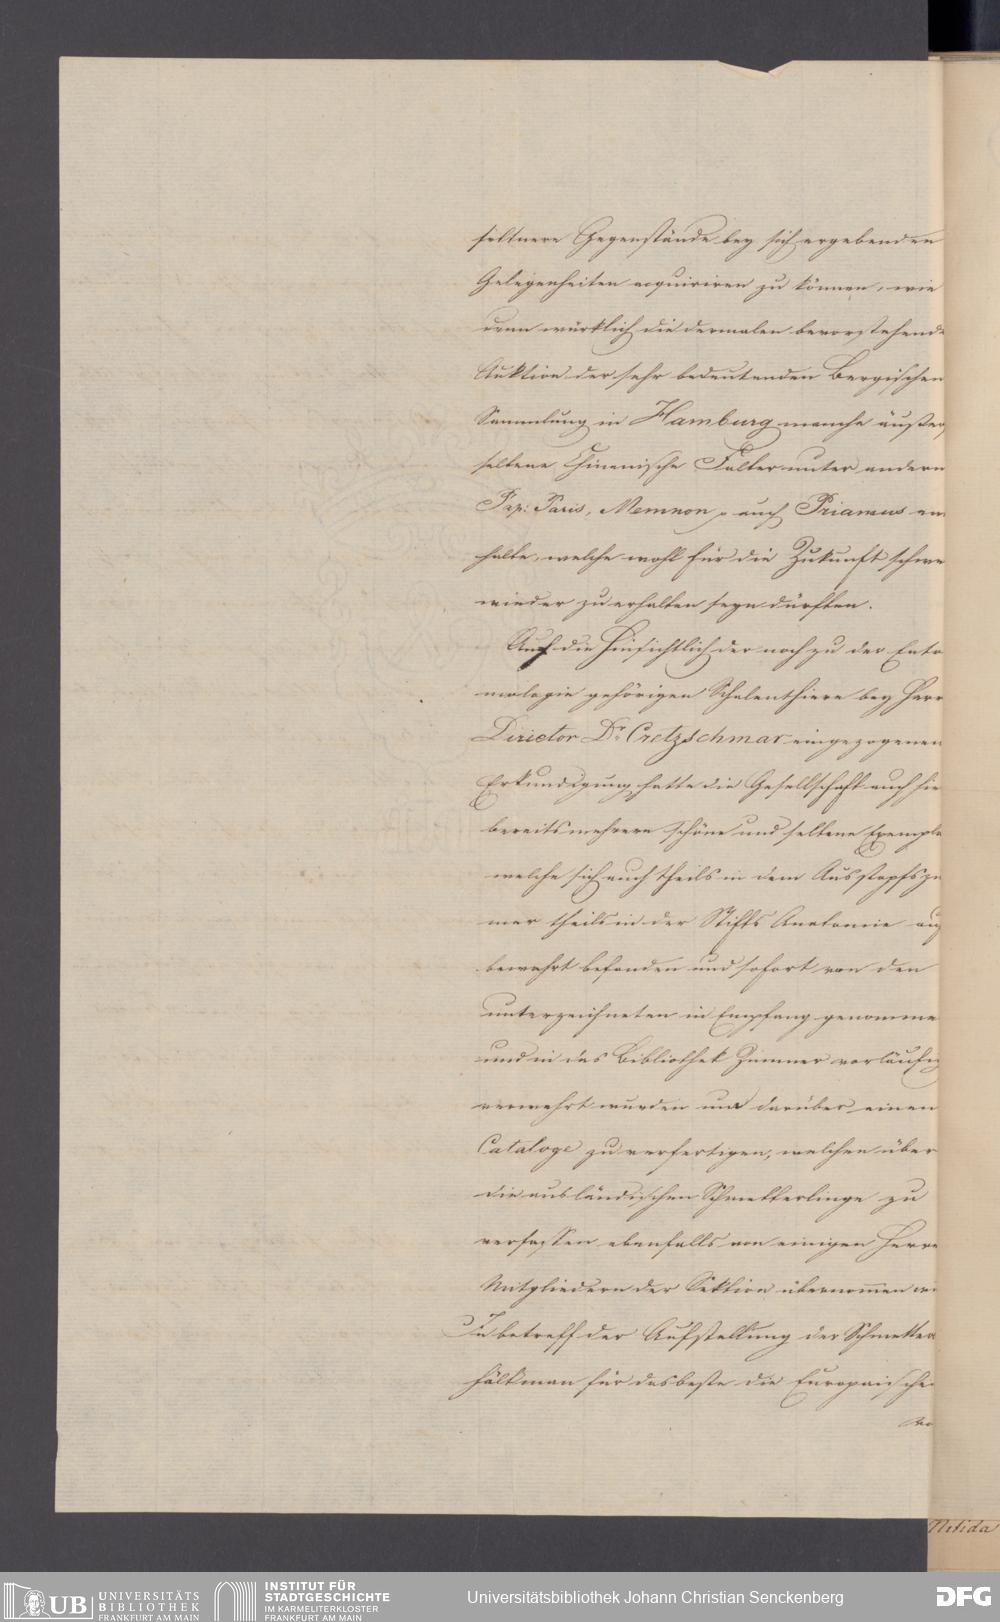 seltnere Gegenstände bey sich ergebenden
Gelegenheiten acquiriren zu können, wie
denn würklich die dermalen bevorstehende
Auktion der sehr bedeutenden Bergischen
Sammlung in Hamburg manche äußer
seltene Chinenische Falter unter andern
Pap: Paris, Memnon p auch Priamus en
halte, welche wohl für die Zukunft schwe
wieder zu erhalten seyn dürften.
Auf die Hinsichtlich der noch zu der Ento
mologie gehörigen Schalenthiere bey Herr
Director Dr. Cretzschmar eingezogenen
Erkundigung hatte die Gesellschaft auch hie
bereits mehrere schöne und seltene Exempla
welche sich auch theils in dem Ausstopfszi
mer theils in der Stifts Anatomie auf
bewahrt befanden und sofort von den
unterzeichneten in Empfang genomme
und in das Bibliothek Zimmer vorläufig
verwahrt wurden um darüber einen
Cataloge zu verfertigen, welchen über
die ausländischen Schmetterlinge zu
verfassen ebenfalls von einigen Herre
Mitgliedern der Sektion übernommen
In betreff der Aufstellung der Schmetter
hält man für das beste die Europäische
Nitida
UB UNIVERSITÄTS
BIBLIOTHEK
FRANKFURT AM MAIN
INSTITUT FÜR
STADTGESCHICHTE
IM KARMELITERKLOSTER
FRANKFURT AM MAIN
Universitätsbibliothek Johann Christian Senckenberg
DFG